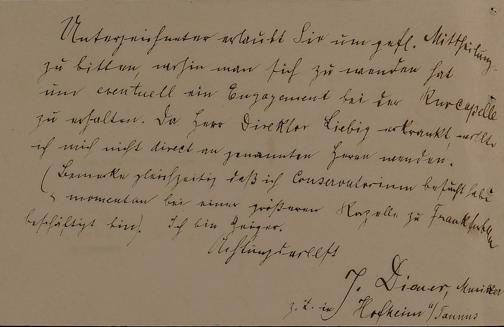 Unterzeichneter erlaubt Sie um gefl. Mittheilung
zu bitten, wohin man sich zu wenden hat
um eventuell ein Engagement bei der Kurcapelle
zu erhalten. Da Herr Direktor Liebig erkrankt, wollte
ich mich nicht direct an genannten Herrn wenden.
(Bemerke gleichzeitig daß ich Conservatorium besucht habe
u. momentan bei einer größeren Kapelle zu Frankfurt
beschäftigt bin). Ich bin Geiger.
Achtungsvollst
J. Diener, Musiker
z. Z. in Hofheim a/Taunus